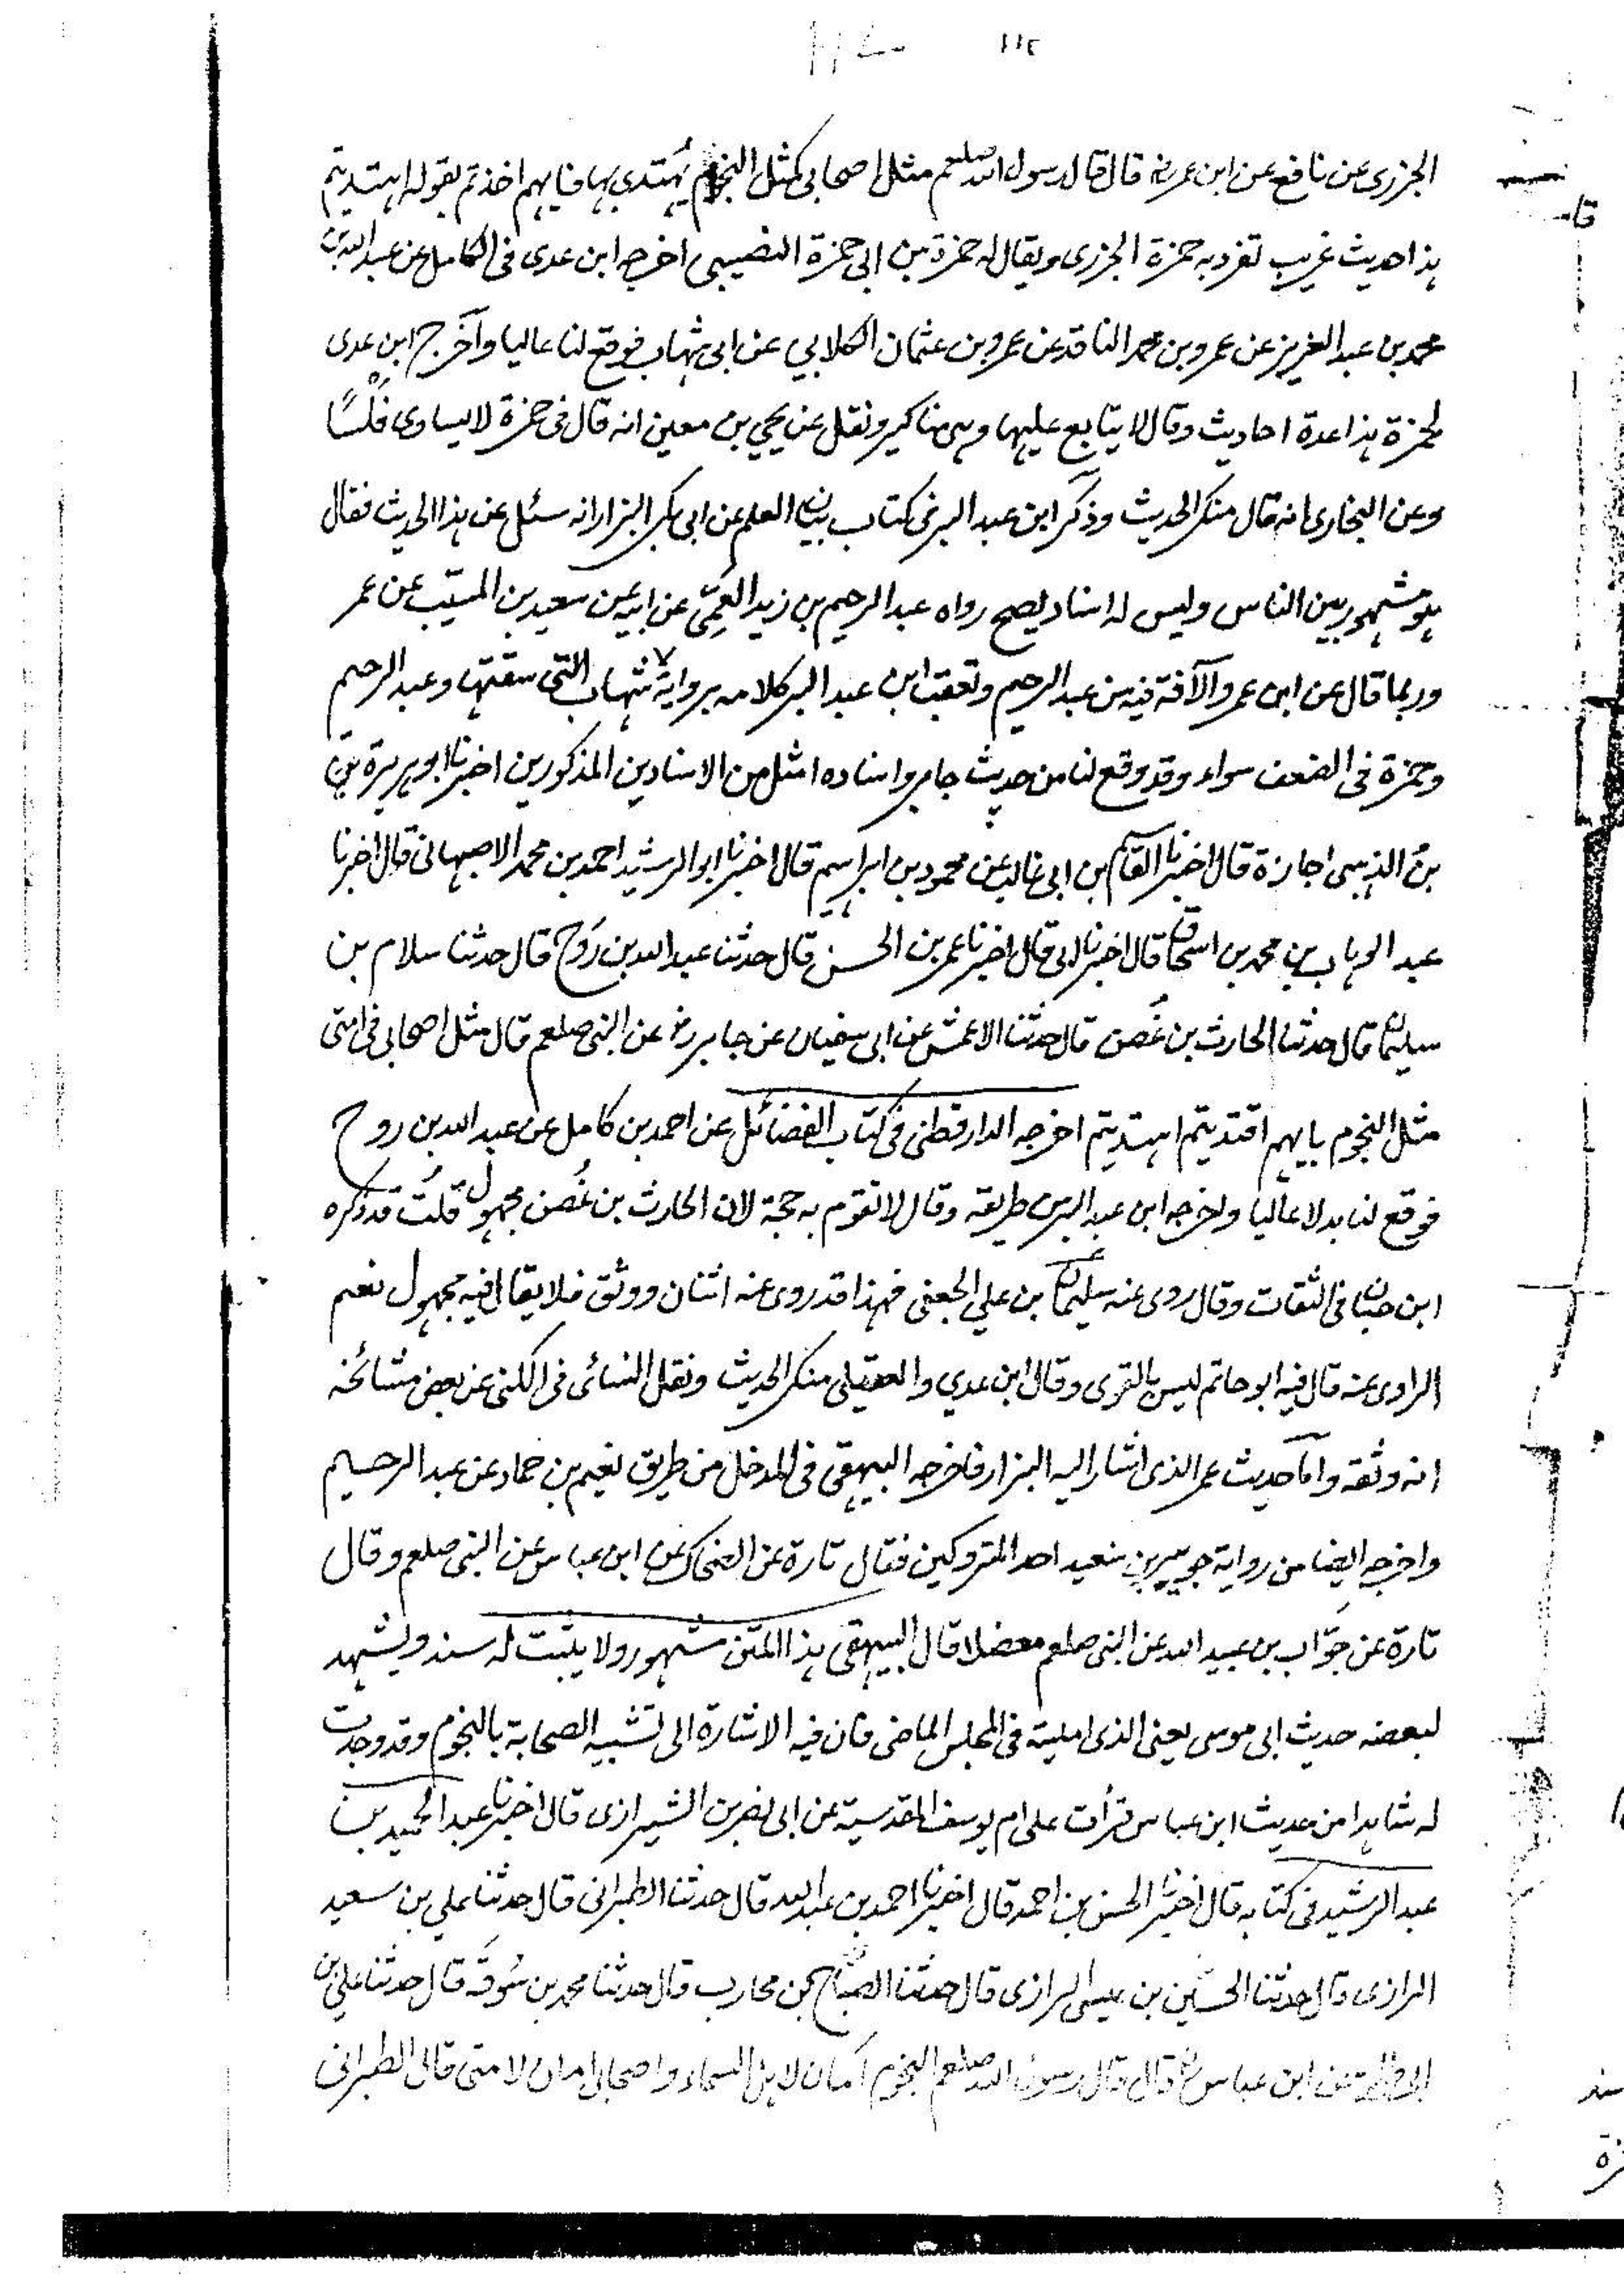 ١١٤
الجزري عن نافع عن ابن عمر رض قال قال رسول الله صلعم مثل اصحابي كمثل النجوم يُهتدي بها فايهم اخذتم بقوله اهتديتم
هذا حديث غريب تفرد به حمزة الجزري ويقال له حمزة بن ابي حمزة النصيبي اخرجه ابن عدى فى الكامل عن عبد الله بن
محمد بن عبد العزيز عن عمرو بن محمد الناقد عن عمرو بن عثمان الكلابي عن ابى شهاب فوقع لنا عاليا وآخرج ابن عدى
لحمزة هذا عدة احاديث وقال لا يتابع عليها وهى مناكير ونقل عن يحيي بن معين انه قال فى حمزة لا يساوى فَلْسًا
وعن البخارى انه قال منكر الحديث وذكر ابن عبد البر فى كتاب بيان العلم عن ابى بكر البزار انه سئل عن هذا الحديث فقال
هو مشهور بين الناس وليس له اسناد يصح رواه عبد الرحيم بن زيد العَمِّىّ عن ابيه عن سعيد بن المسيّب عن عمر
وربما قال عن ابن عمر والآفة فيه من عبد الرحيم وتعقب ابن عبد البر كلامه برواية شهاب التى سقتها وعبد الرحيم
وحمزة فى الضعف سواء وقد وقع لنا من حديث جابر واسناده امثل من الاسنادين المذكورين اخبرنا ابو هريرة
بن الذهبى اجازة قال اخبرنا القاسم بن ابى غالب عن محمود بن ابراهيم قال اخبرنا ابو الرشيد احمد بن محمد الاصبهانى قال اخبرنا
عبد الوهاب بن محمد بن اسحاق قال اخبرنا ابى قال اخبرنا عمر بن الحسن قال حدثنا عبد الله بن رَوْح قال حدثنا سلام بن
سليمان قال حدثنا الحارث بن غُصن قال حدثنا الاعمش عن ابى سفيان عن جابر رض عن النبى صلعم قال مثل اصحابى فى امتى
مثل النجوم بايهم اقتديتم اهتديتم اخرجه الدارقطنى فى كتاب الفضائل عن احمد بن كامل عن عبد الله بن روح
فوقع لنا بدلا عاليا واخرجه ابن عبد البر من طريقه وقال لا تقوم به حجة لان الحارث بن غُصن مجهول قلتُ قد ذكره
ابن حبان فى الثقات وقال روى عنه سليمان بن علي الجعفى فهذا قد روى عنه اثنان ووثق فلا يقال فيه مجهول نعم
الراوى عنه قال فيه ابو حاتم ليس بالقوى وقال ابن عدي والعقيلى منكر الحديث ونقل النسائى فى الكنى عن بعض مشائخه
انه وثقه وامّا حديث عمر الذى اشار اليه البزار فاخرجه البيهقى فى المدخل من طريق نعيم بن حماد عن عبد الرحيم
واخرجه ايضا من رواية جويبر بن سعيد احد المتروكين فقال تارة عن الضحاك عن ابن عباس عن النبى صلعم وقال
تارة عن جوّاب بن عبيد الله عن النبى صلعم معضلا قال البيهقى هذا المتن مشهور ولا يثبت له سند ويشهد
لبعضه حديث ابى موسى يعنى الذى امليته فى المجلس الماضى فان فيه الاشارة الى تشبيه الصحابة بالنجوم وقد وجدت
له شاهدا من حديث ابن عباس قرأت على ام يوسف المقدسية عن ابى نصر بن الشيرازى قال اخبرنا عبد الحميد بن
عبد الرشيد فى كتابه قال اخبرنا الحسن بن احمد قال اخبرنا احمد بن عبد الله قال حدثنا الطبرانى قال حدثنا علي بن سعيد
الرازى قال حدثنا الحسين بن عيسى الرازى قال حدثنا الصباح بن محارب قال حدثنا محمد بن سُوقَة قال حدثنا علي بن
ابى طلحة عن ابن عباس رض قال قال رسول الله صلعم النجوم أمان لاهل السماء واصحابى امان لامتى قال الطبرانى